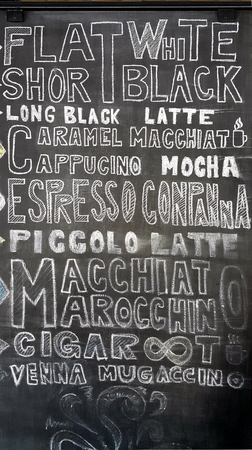 FLAT WHITE
SHORT BLACK
LONG BLACK LATTE
CARAMEL MACCHIATO
CAPPUCINO MOCHA
ESPRESSO CONPANNA
PICCOLO LATTE
MACCHIATO
MAROCCHINO
CIGAROOT
VENNA MUGACCINO